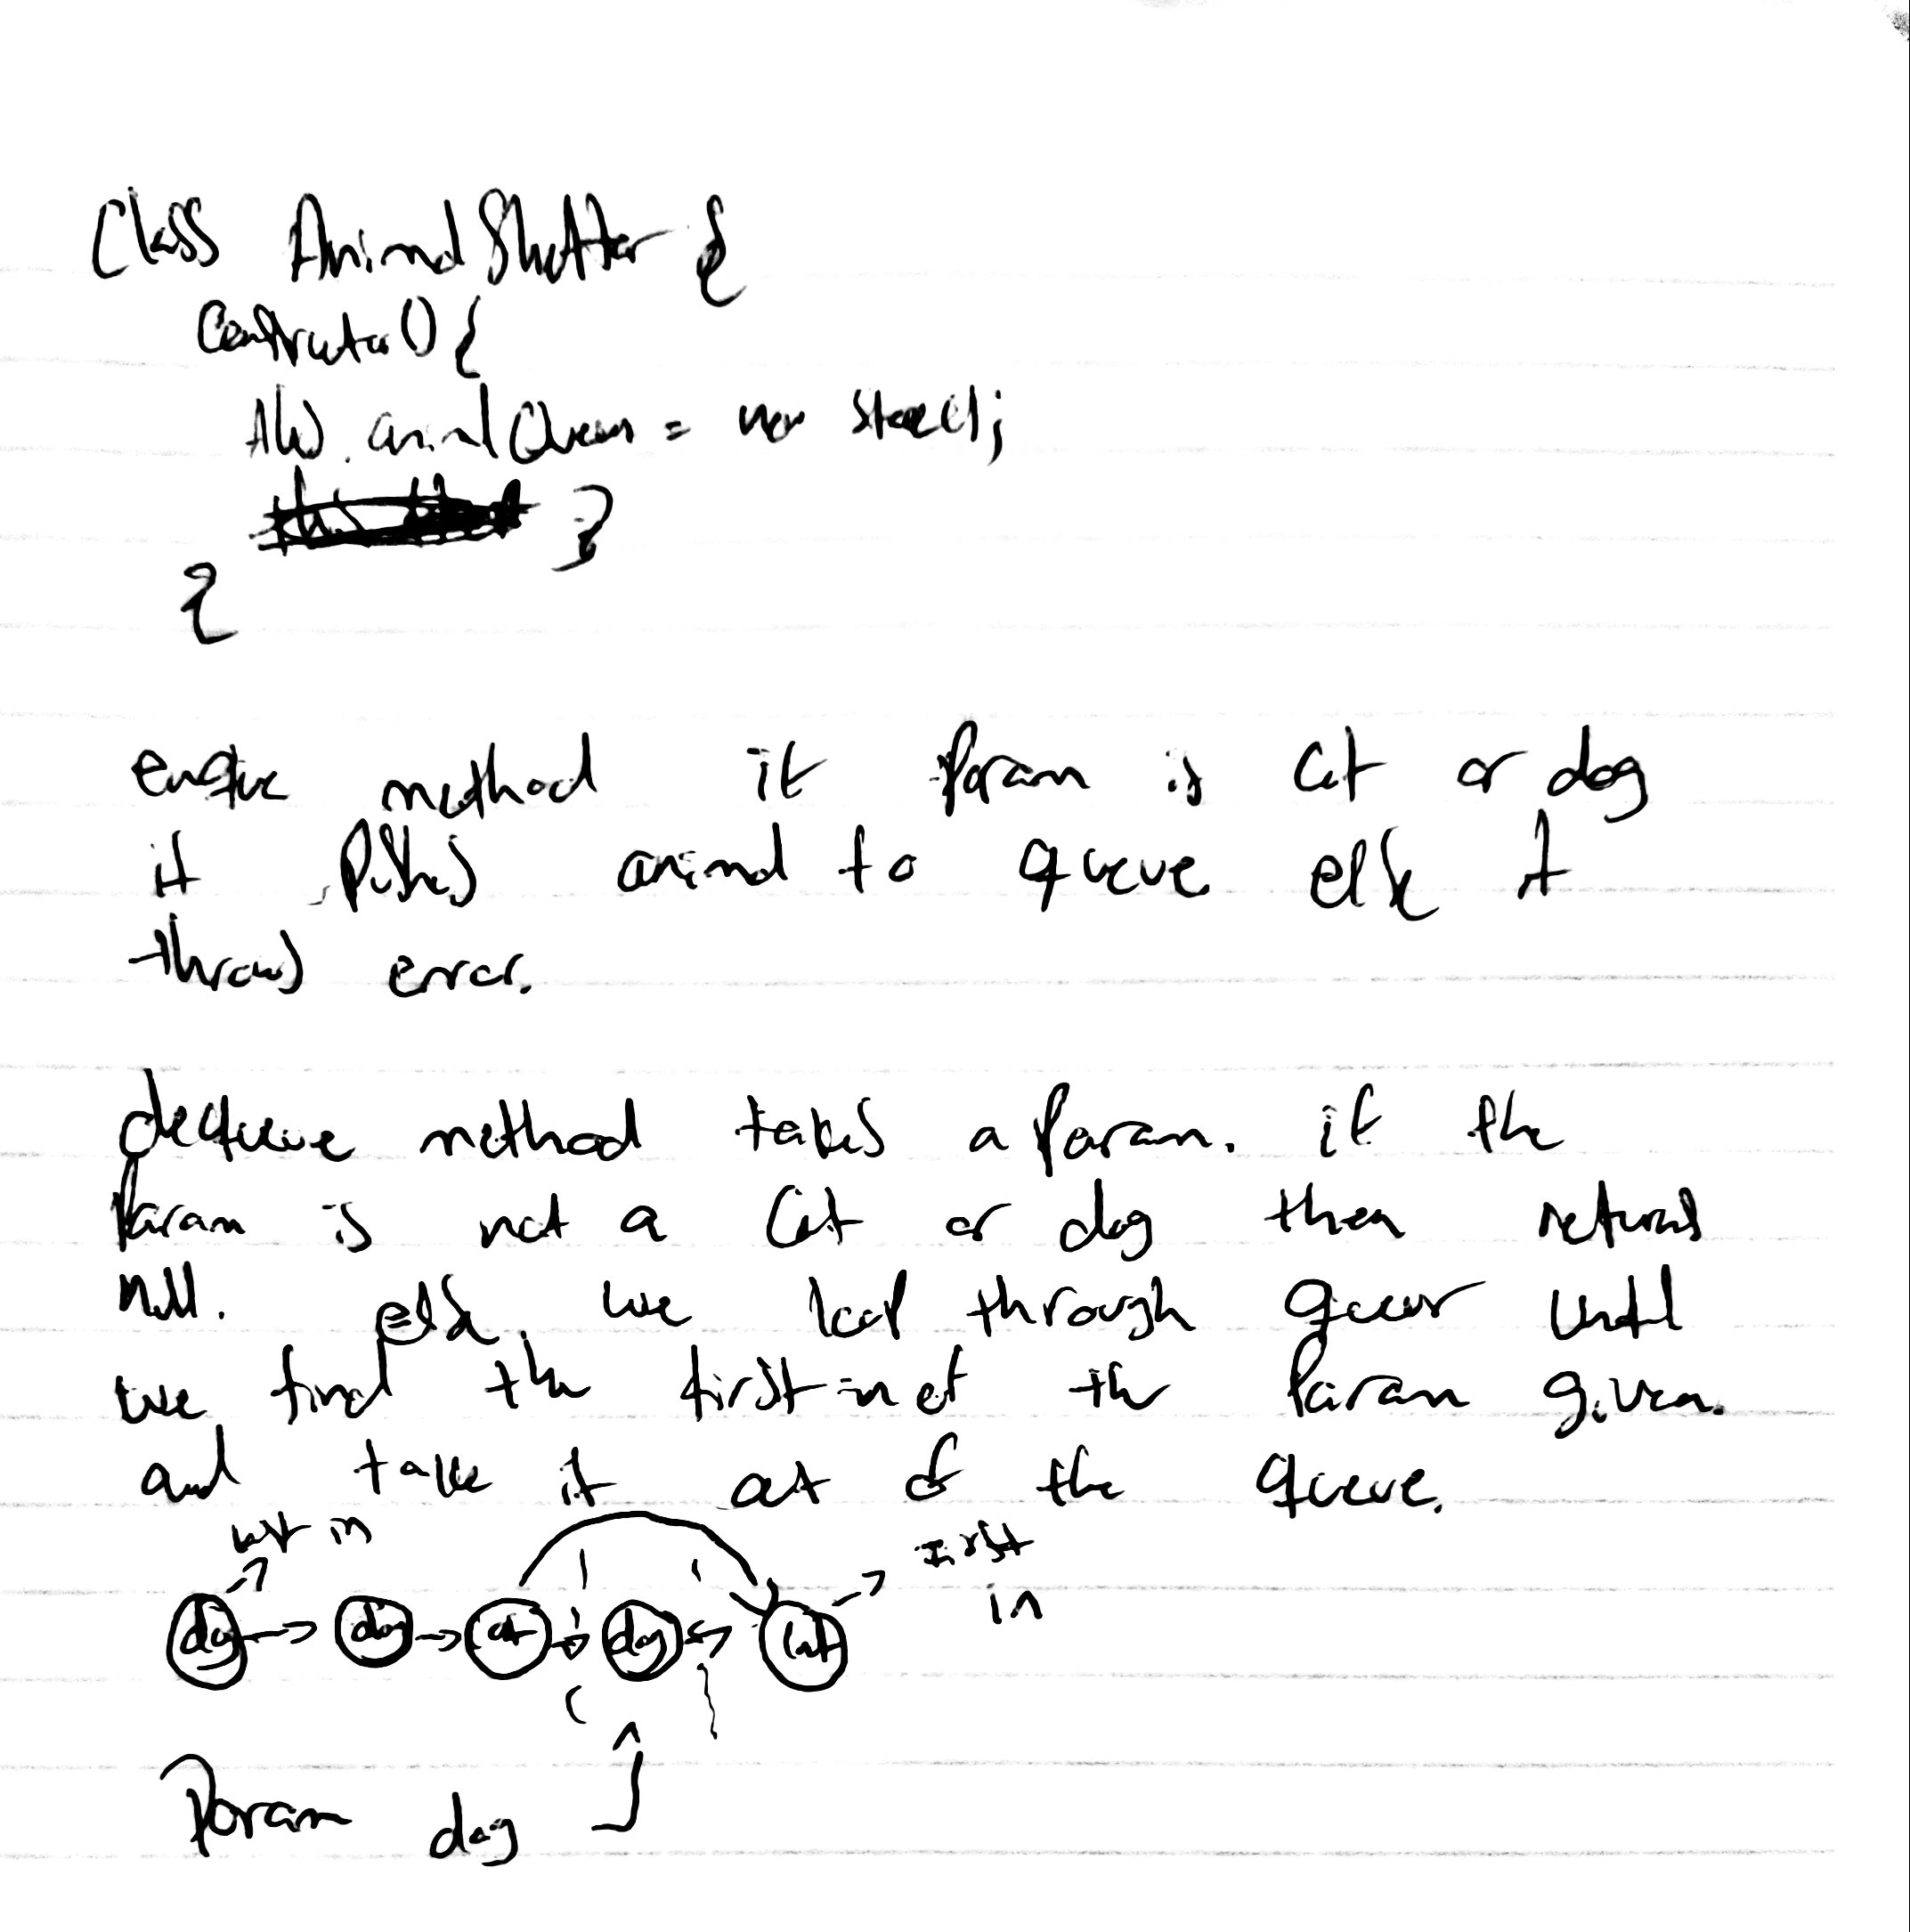 Class AnimalShelter {
Constructor() {
this. animalQueue = new Stack();
}
}
enqueue method if param is Cat or dog
it Pushes animal to queue else it
throws error.
dequeue method takes a Param. if the
Param is not a Cat or dog then returns
Null. else, we loop through queue Until
we find the first-in of the Param given.
and take it out of the queue.
last in first in
dog dog cat dog Cat
Param dog